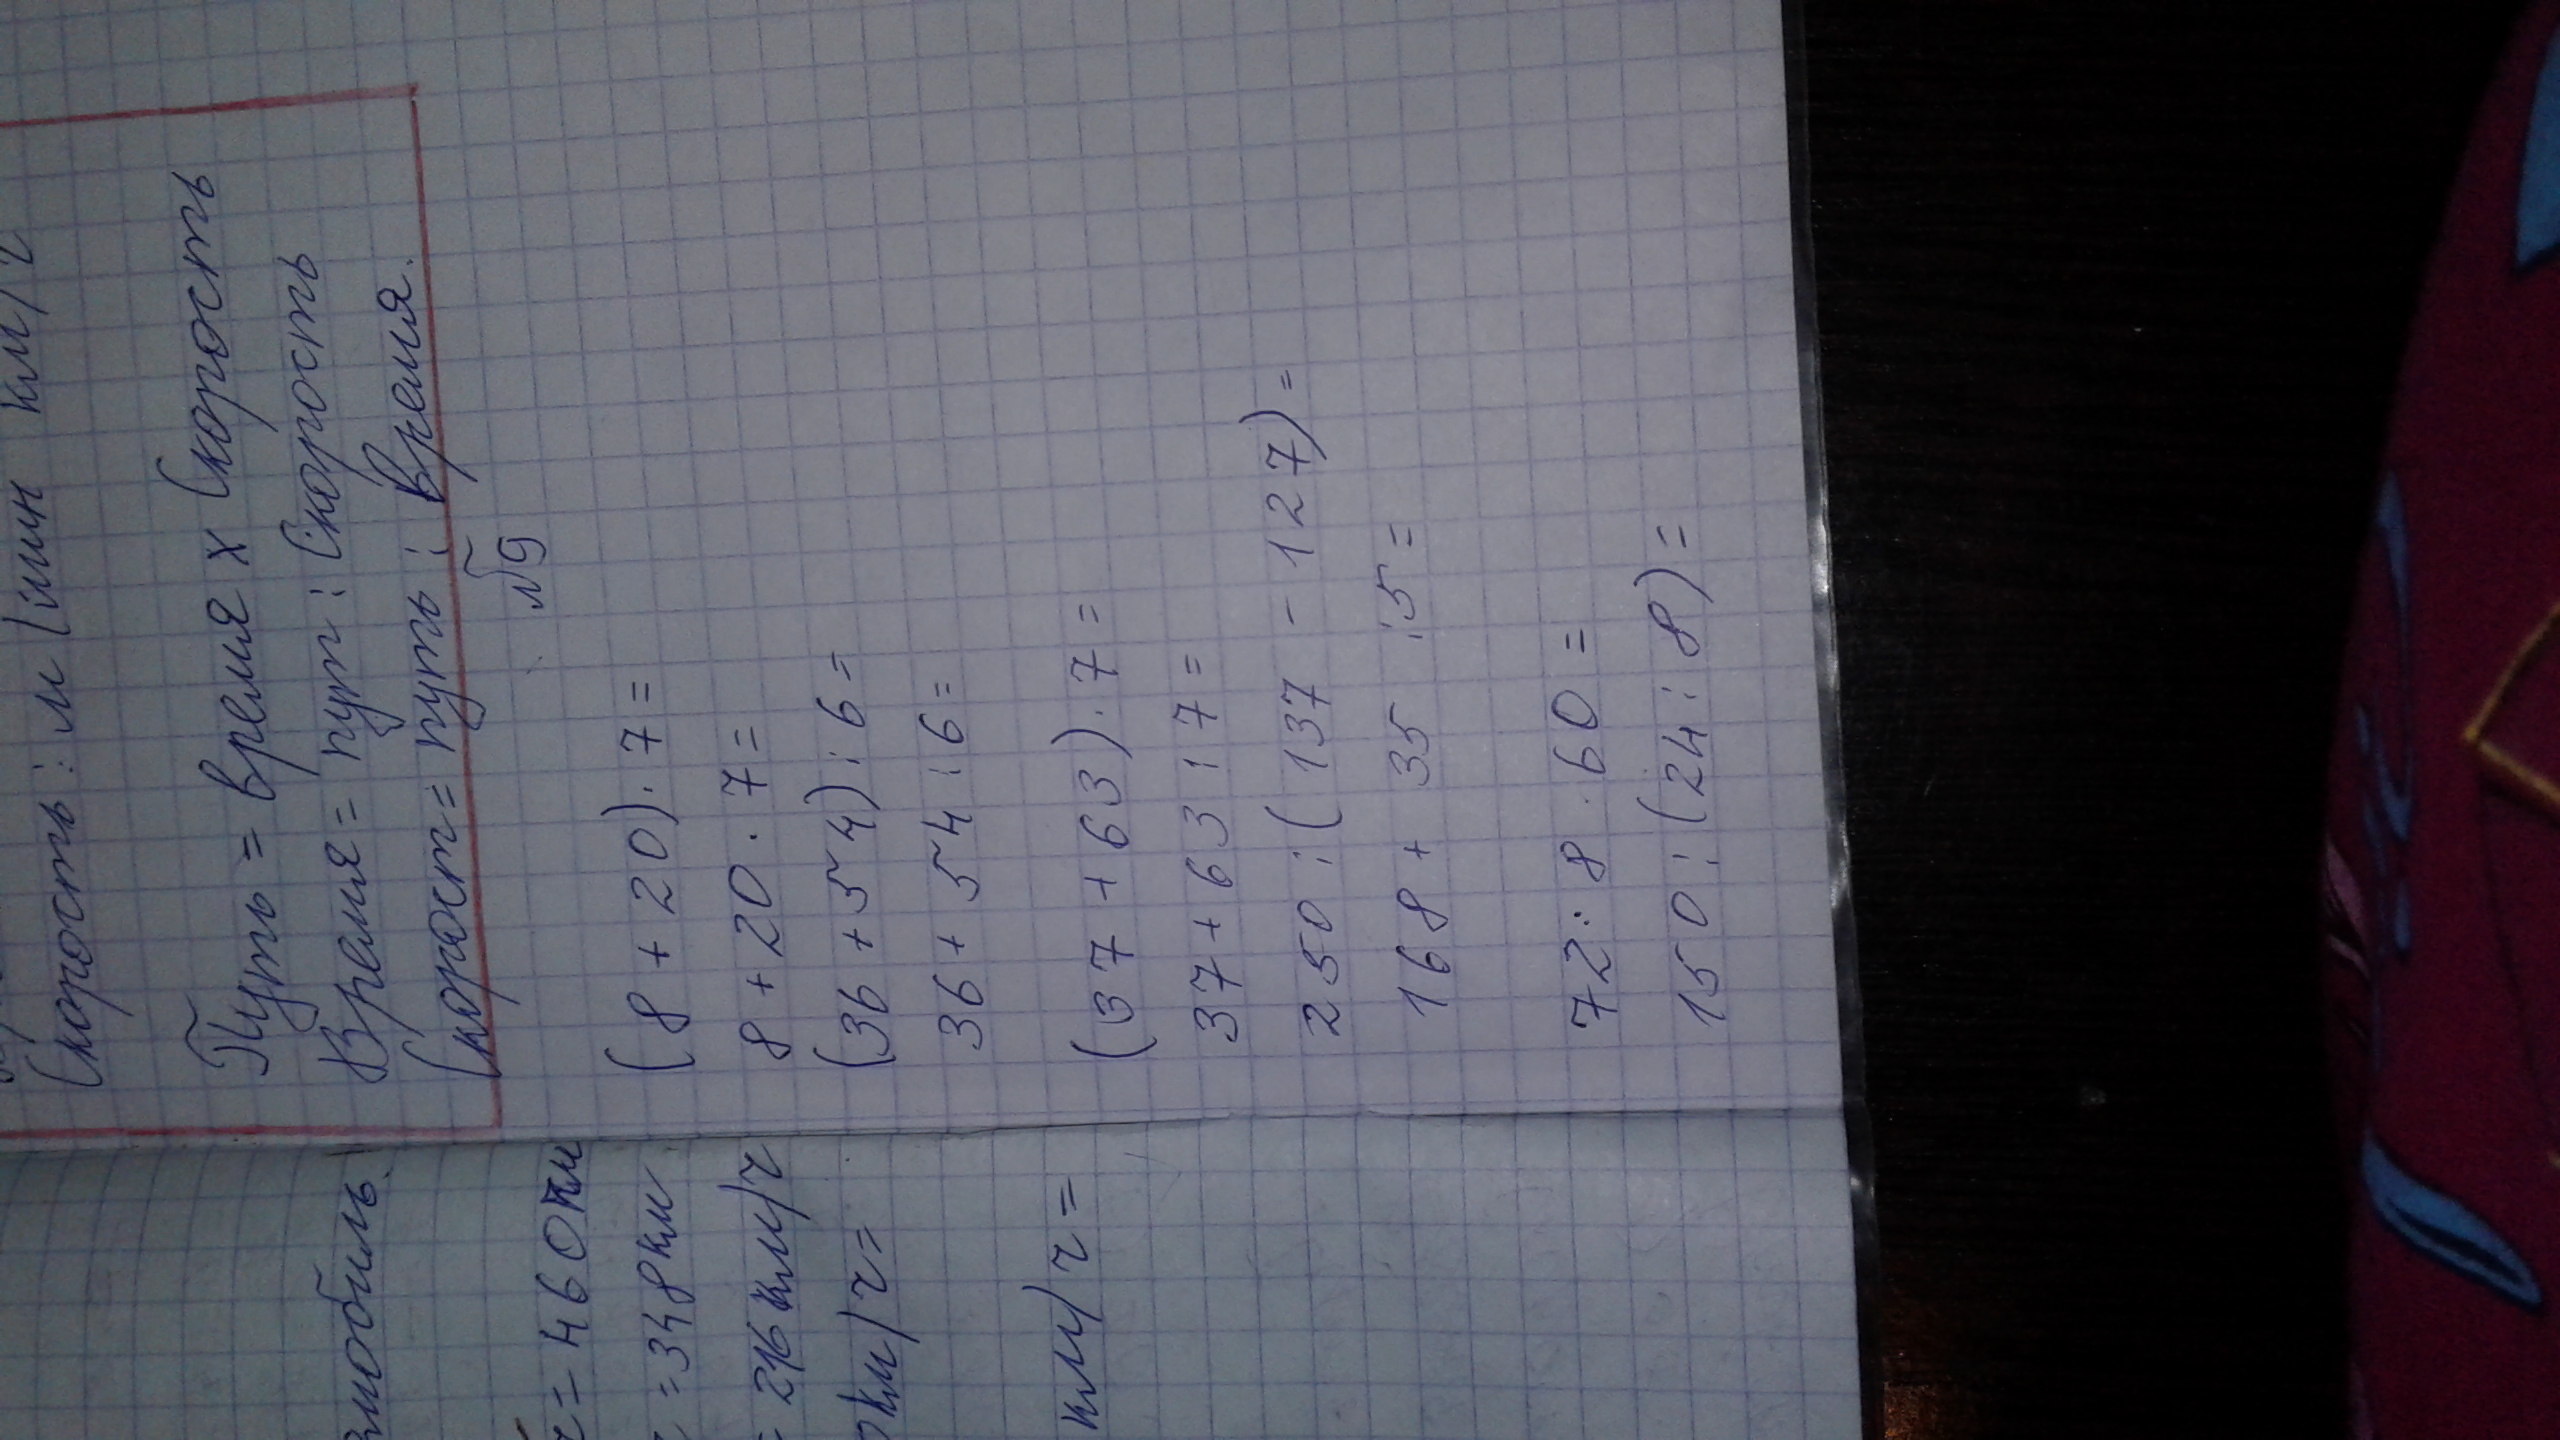 Скорость: м/мин км/ч
Путь = время х Скорость
Время = пут : Скорость
Скорост = путь : время.
№9
(8 + 20) · 7 =
8 + 20 · 7 =
(36 + 54) : 6 =
36 + 54 : 6 =
(37 + 63) · 7 =
37 + 63 : 7 =
250 : (137 - 127) =
168 + 35 : 5 =
72 : 8 · 60 =
150 : (24 : 8) =
мобиль.
= 460 км
= 348 км
216 км/ч
км/ч =
км/ч =